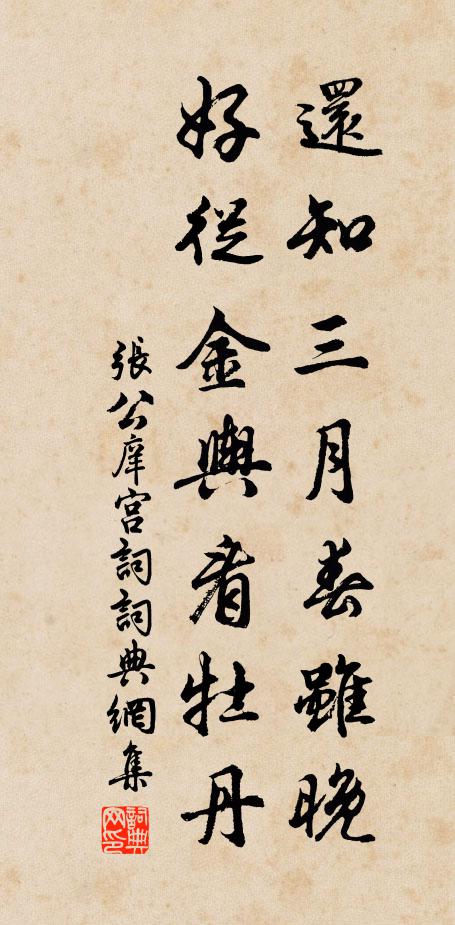 還知三月春雖晚
好從金輿看牡丹
張公庠宮詞詞典網集
詞典网印